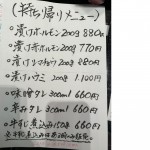 (持ち帰りメニュー)
・漬けホルモン200g 880円
・漬け赤ホルモン200g 770円
・漬け 200g 880円
・漬けハラミ 1,100円
・味噌タレ300ml 660円
・辛みタレ300ml 660円
・牛すじ煮込み150g 660円